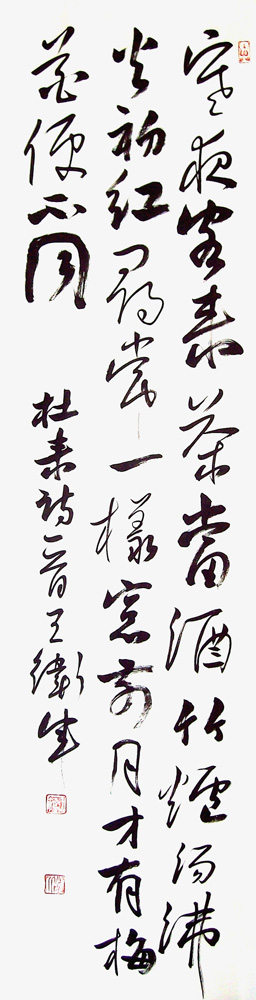 寒夜客来茶當酒竹爐湯沸
火初紅尋常一樣窓前月才有梅
花便不同
杜耒詩一首王衛生